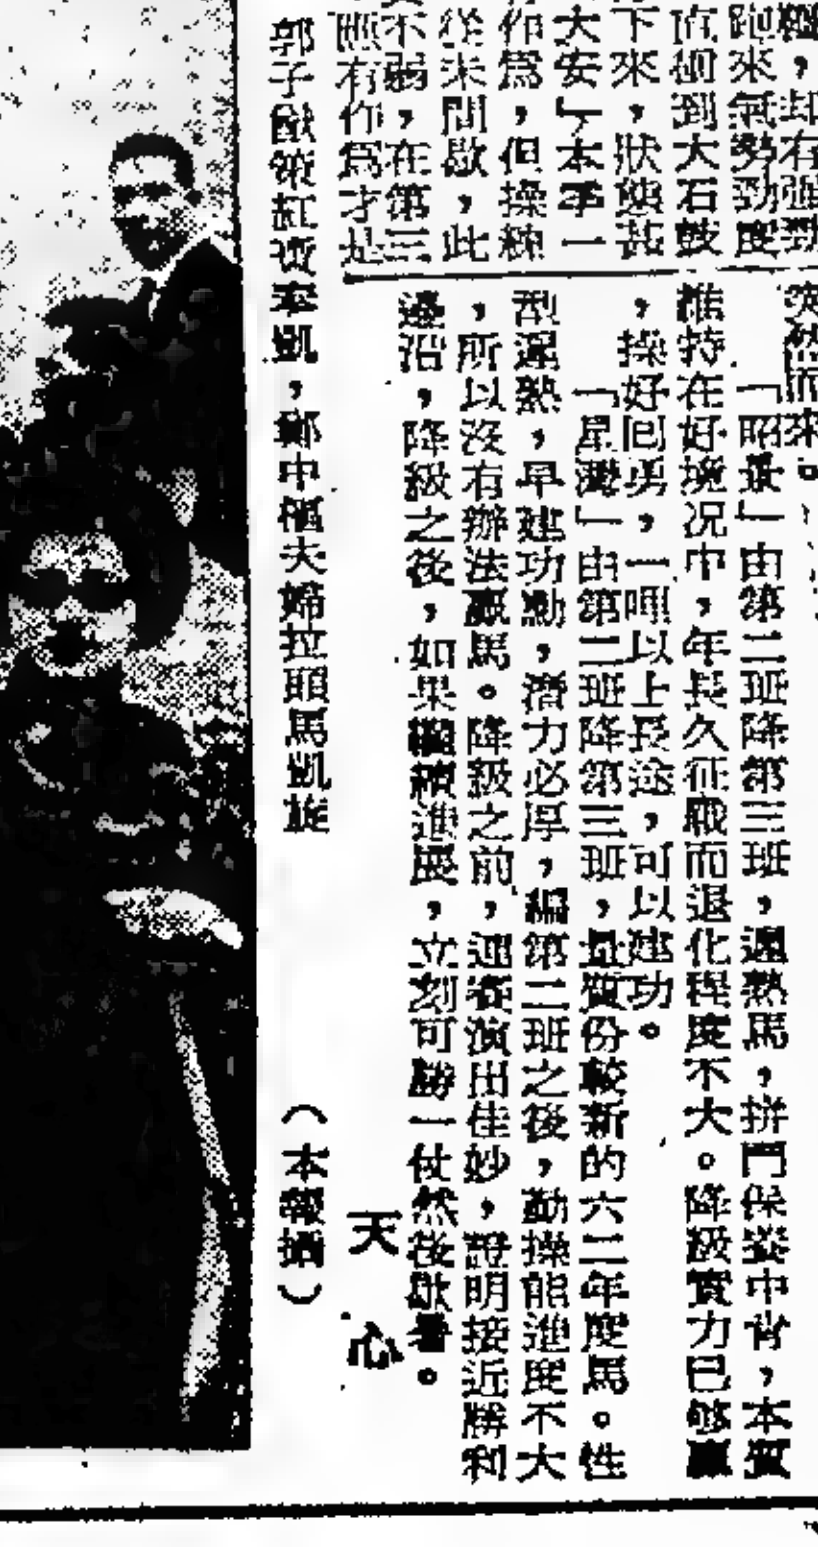 却有强勁
跑來氣勢勁度
直衝到大石鼓
下來，狀態甚
大安」，本季一
作爲，但操練
從未間歇，此
不弱，在第三
照有作爲才是
突然而來。
「昭景」由第二班降第三班，遲熟馬，拼鬥保養中肯，本質
維持在好境況中，年長久征戰而退化程度不大。降級實力已够贏
，操好回勇，一哩以上長途，可以建功。
「星灣」由第二班降第三班，是質份較新的六二年度馬。性
型遲熟，早建功勳，潛力必厚，編第二班之後，勤操能進度不大
，所以沒有辦法贏馬。降級之前，連番演出佳妙，證明接近勝利
邊沿，降級之後，如果繼續進展，立刻可勝一仗然後歇暑。
天心
郭子猷策紅寶奏凱，鄭中樞夫婦拉頭馬凱旋
（本報攝）